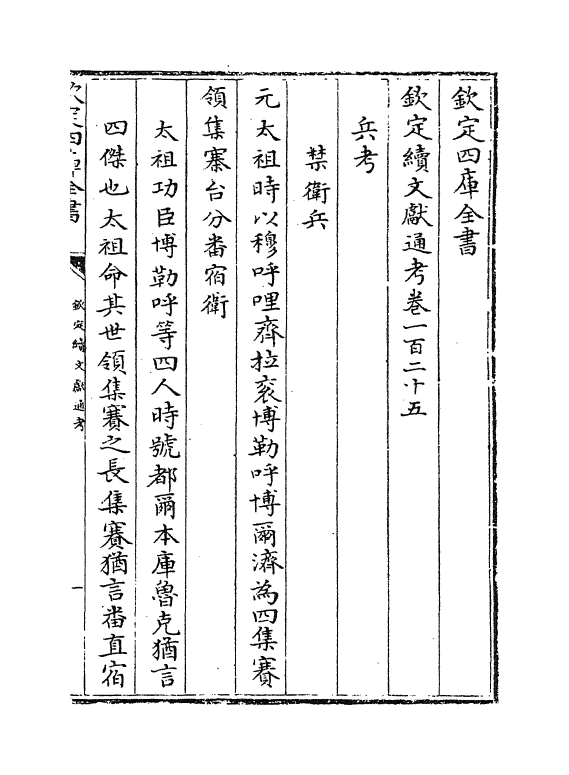 欽定四庫全書
欽定續文獻通考卷一百二十五
兵考
禁衛兵
元太祖時以穆呼哩齊拉衮博勒呼博爾濟為四集賽
領集寨台分番宿衛
太祖功臣博勒呼等四人時號都爾本庫魯克猶言
四傑也太祖命其世領集賽之長集賽猶言番直宿
欽定四庫全書
欽定續文獻通考
一